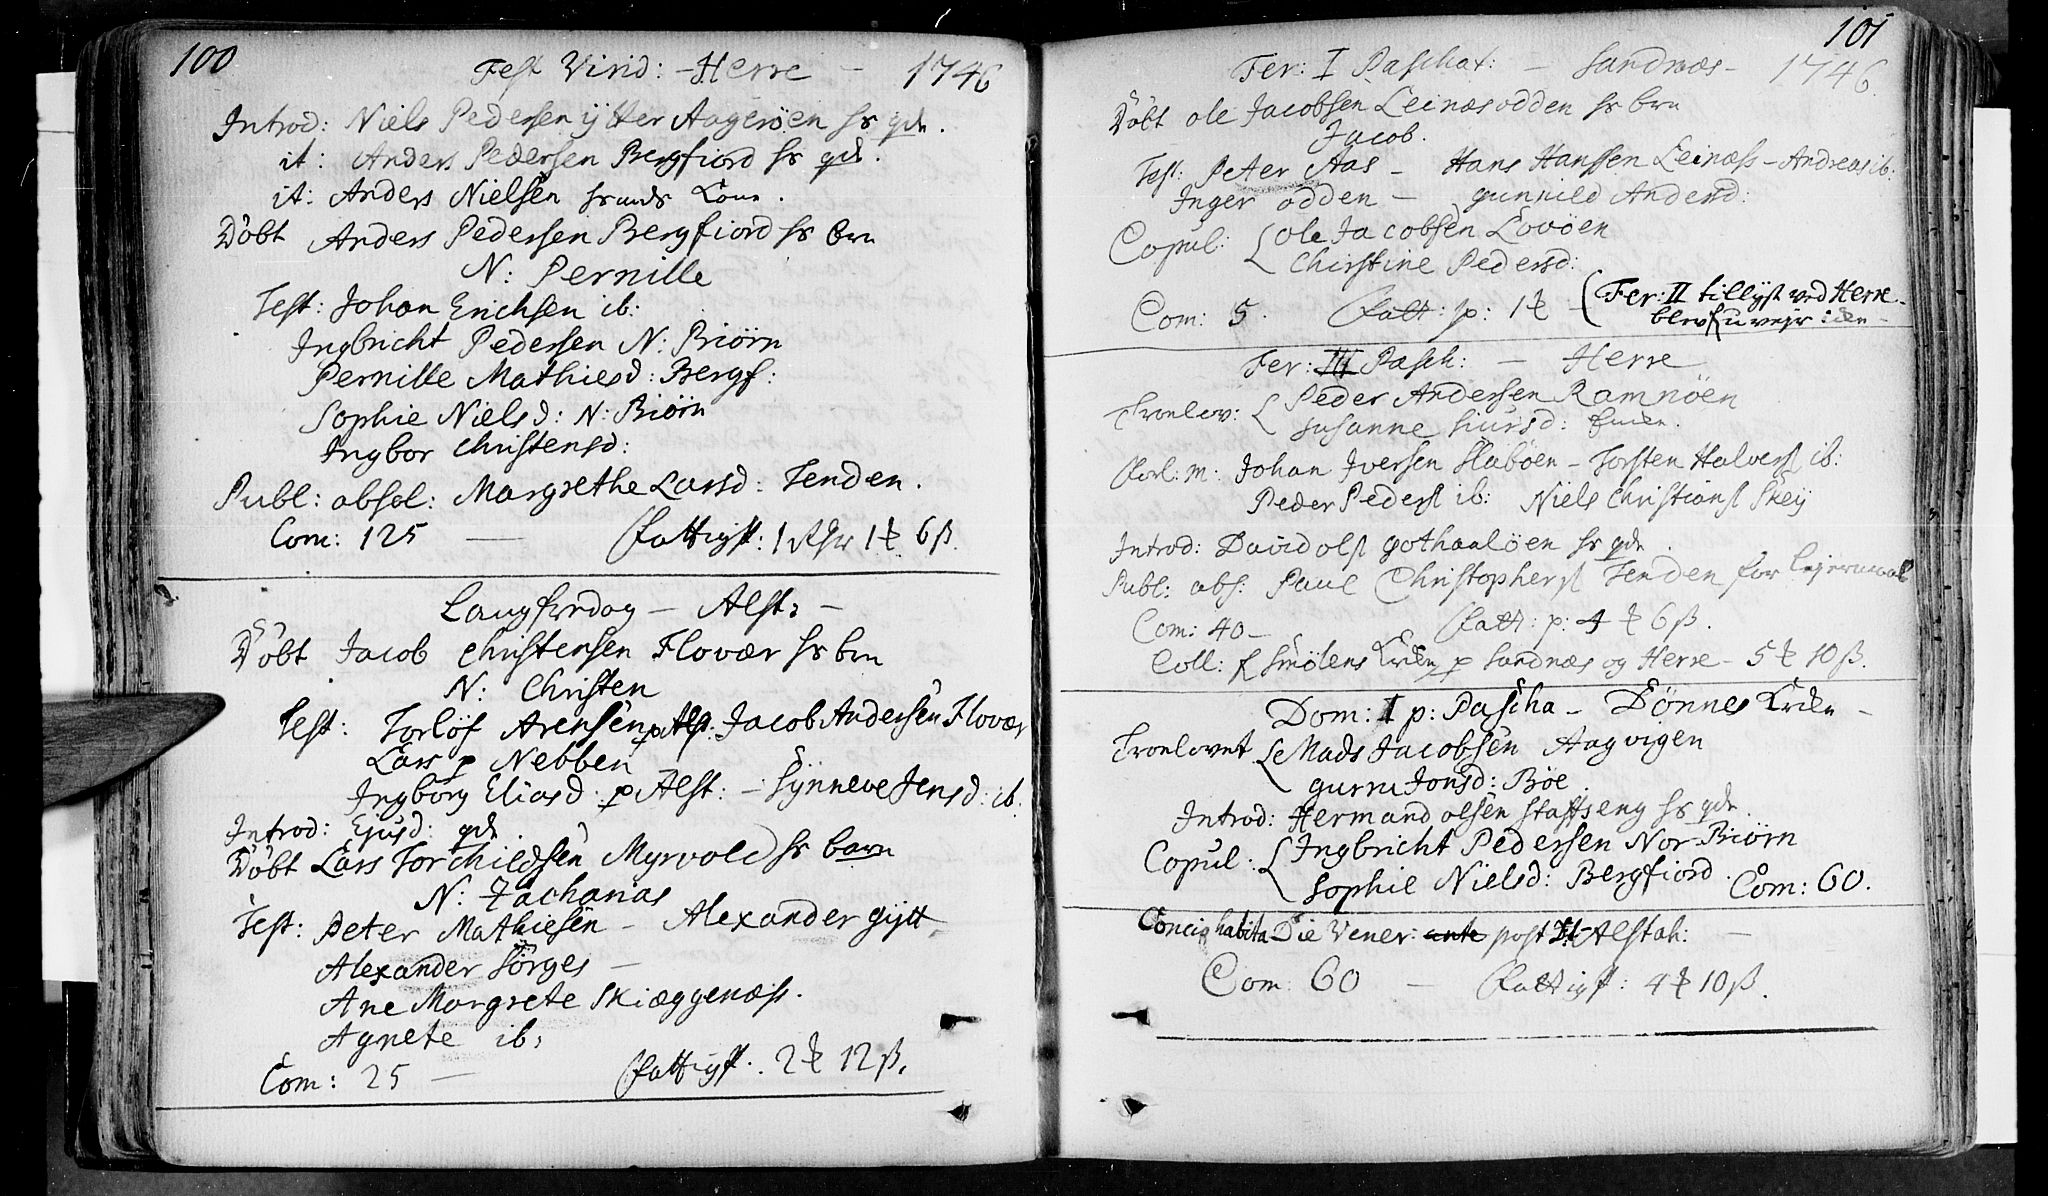 100
Fest Virid: - Herre - 1746
Introd: Niels Pedersen ÿtter Aagerøen hs qde.
it: Anders Pedersen Bergfiord hs qde.
it: Anders Nielsen Kone.
Døbt Anders Pedersen Bergfiord hs brn
N: Pernille
Test: Johan Erichsen ib:
Ingbricht Pedersen N: Biørn
Pernille Mathiesd: Bergf:
Sophie Nielsd: N: Biørn
Ingbor Christensd:
Publ: absol: Margrethe Larsd: Tenden.
Com: 125 — Fattigf: 1 Rdr 1 6 ß.
Langfredag - Alst: -
Døbt Jacob Christensen Flovær hs brn
N: Christen
Test: Torløf Arensen p Alst: Jacob Andersen Flovær
Lars p Nebben
Ingborg Eliasd: p Alst: - Synneve Jensd: ib.
Introd: Ejusd: qde.
Døbt Lars Torchildsen Myrvold hs barn
N: Zacharias
Test: Peter Mathiesen - Alexander gÿtt
Alexander Sørges -
Ane Margrete Skiæggenæss.
Agnete ib:
Com: 25 — Fattigf. 2 12 ß.
101
Fer: I Paschat: - Sandnæs - 1746.
Døbt Ole Jacobsen Leinæsodden hs brn
Jacob.
Test: Peter Aas - Hans Hanssen Leinæss - Andreas ib:
Inger Odden - gunnild Andersd:
Copul: Ole Jacobsen Lovøen
Christine Pedersd:
Com: 5. Fatt: p: 1 - (Fer: II tillyst ved Herre -
blev uvejr
Fer: III Pasch: - Herre
Troelov: Peder Andersen Ramnøen
Susanne Siursd:
Forl: m: Johan Iversen Slabøen - Torsten Halvers ib:
Peder Peders ib: Niels Christians Skeÿ
Introd: David Ols gothaaløen hs qde.
Publ: abs: Paul Christophers Tenden for lejermaal
Com: 40 - Fatt: p: 4 6 ß.
Coll: Smølens Kirke p Sandnæs og Herre - 5 10 ß.
Dom: I p: Pascha - Dønnes Kirke -
Troelovet Mads Jacobsen Aagvigen
gurru Jonsd: Bøe.
Introd: Hermand Olsen Staffseng hs qde
Copul: Ingbricht Pedersen Nor-Biørn
Sophie Nielsd: Bergfiord. Com: 60.
Concio habita Die Vener: ante post Alstah: -
Com: 60 - Fattigf: 4 10 ß.